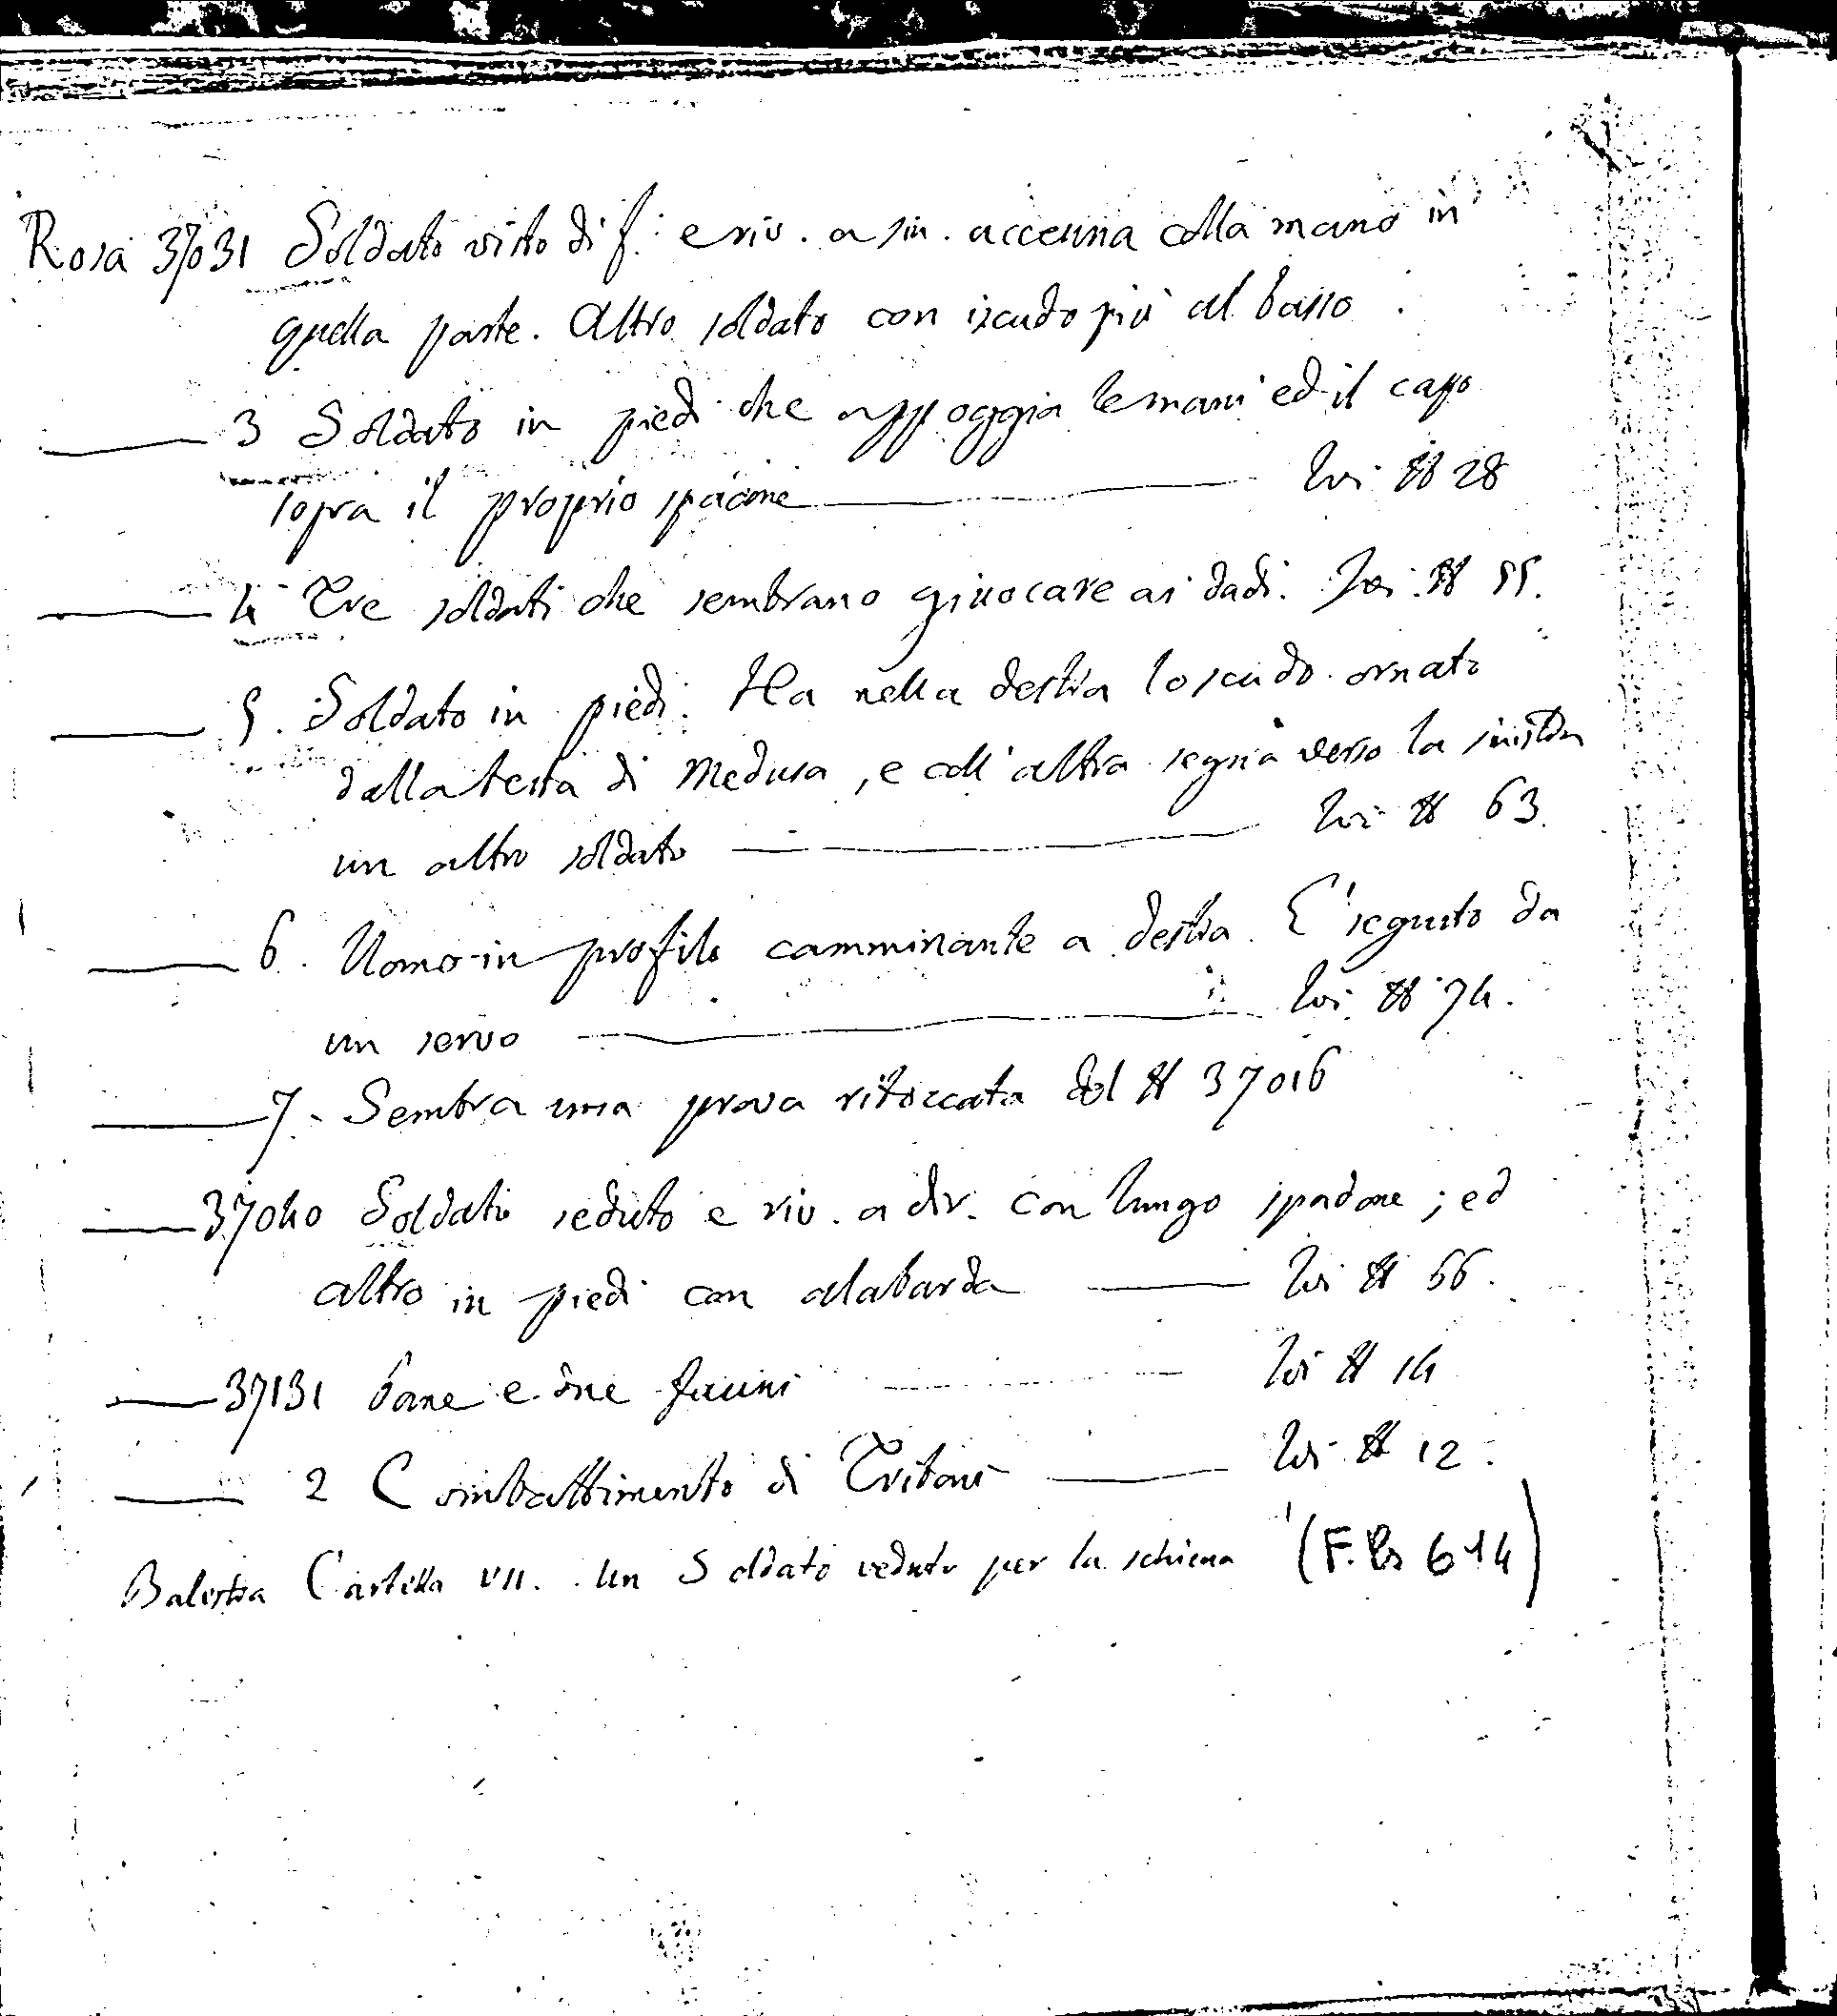 Rosa 37031 Soldato visto di f. e riv. a sin. accenna colla mano in
quella parte. Altro soldato con iscudo più al basso.
—— 3 Soldato in piedi che appoggia le mani ed il capo
sopra il proprio spadone —— Ivi N 28
—— 4 Tre soldati che sembrano giuocare ai dadi. Ivi. N 55.
—— 5. Soldato in piedi. Ha nella destra lo scudo ornato
dalla testa di Medusa, e coll'altra segna verso la sinistra
un altro soldato —— Ivi N 63.
—— 6. Uomo in profilo camminante a destra. E' seguito da
un servo —— Ivi. N 74.
—— 7. Sembra una prova ritoccata del N 37016
—— 37040 Soldato seduto e riv. a dir. con lungo spadone; ed
altro in piedi con alabarda —— Ivi N 56.
—— 37131 Pane e due fauni —— Ivi N 14
—— 2 Combattimento di Tritoni —— Ivi N 12.
Balestra Cartella VII. Un Soldato veduto per la schiena (F. 614)